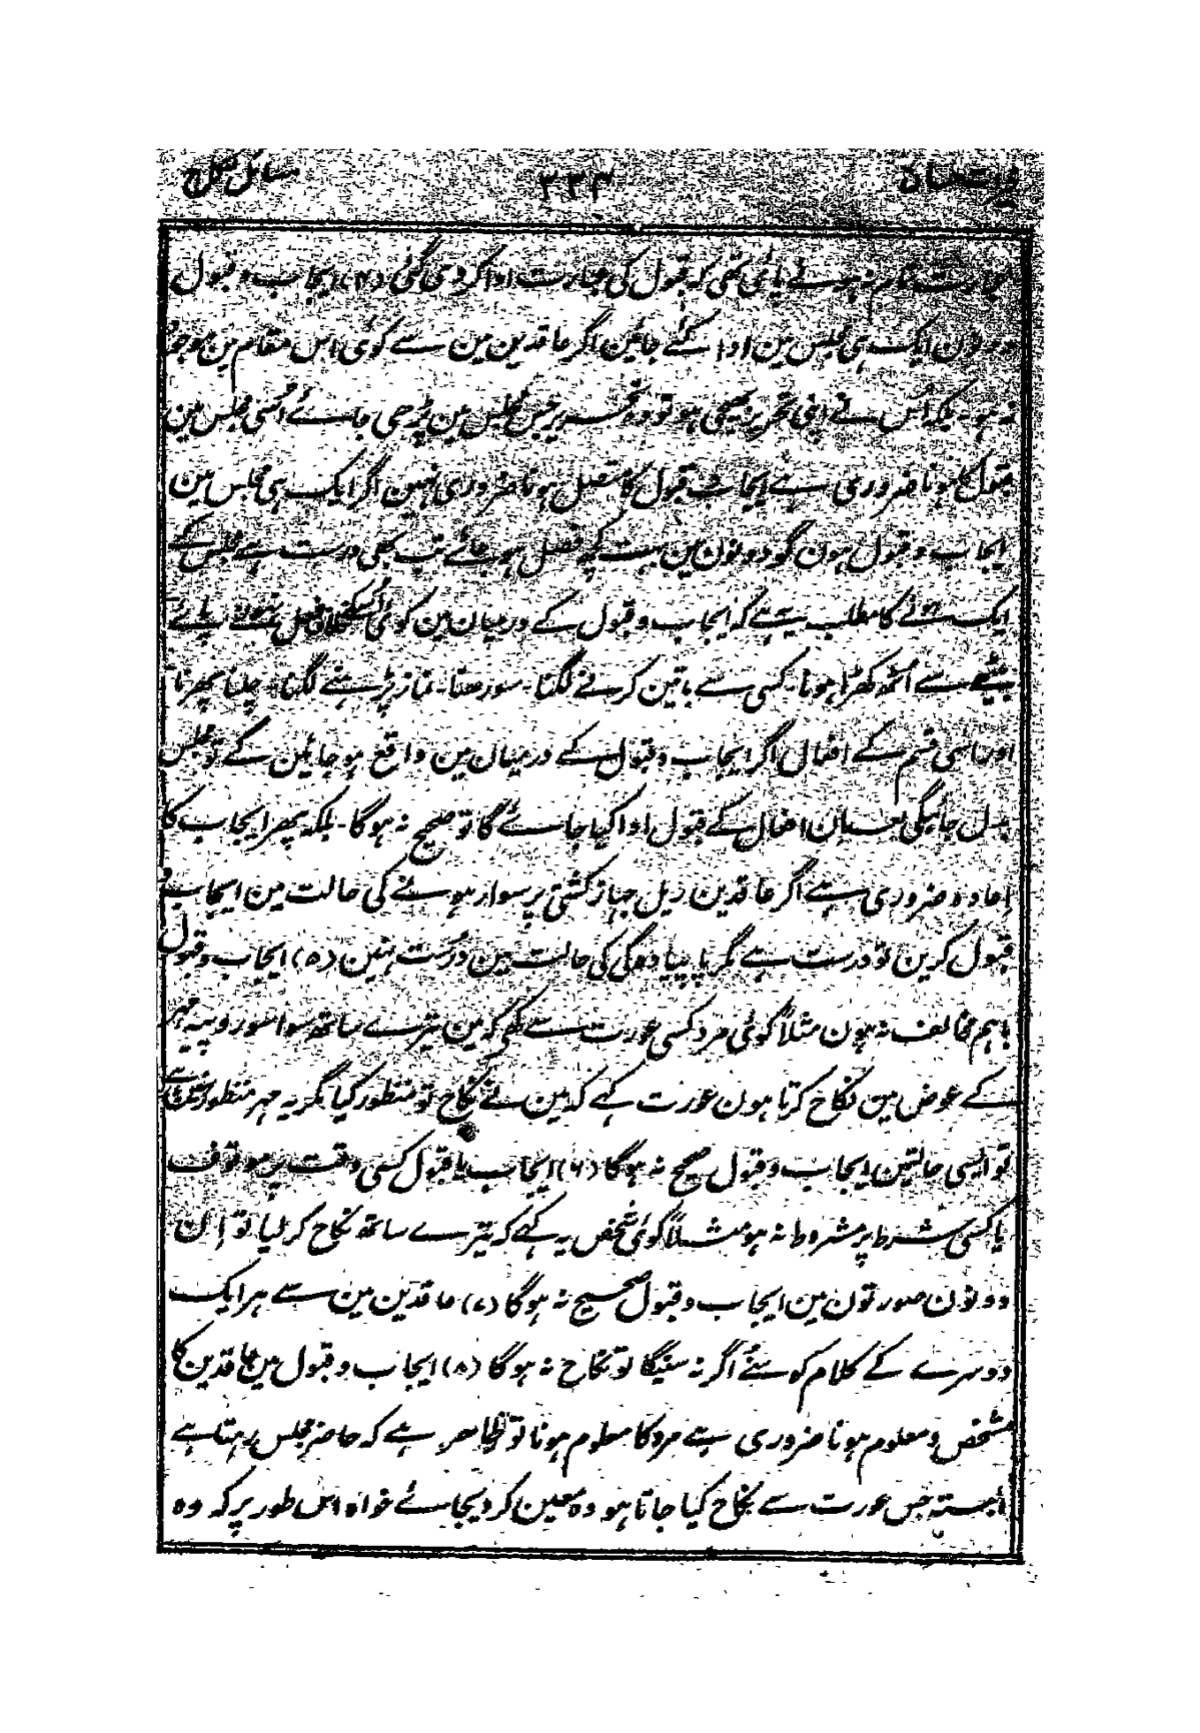 مسائل نکاح ۲۳۴
عبارت تمام نہ ہونے پائی تھی کہ قبول کی عبارت ادا کر دی گئی (۴) ایجاب و قبول
دونون ایک ہی مجلس مین ادا کئے جائین اگر عاقدین مین سے کوئی اس مقام پن موجود
نہ ہو بلکہ اُس نے اپنی تحریر بھیجی ہو تو وہ تحریر جس مجلس مین پڑھی جائے اُسی مجلس مین
قبول کا ہونا ضروری ہے ایجاب و قبول کا متصل ہونا ضروری نہین اگر ایک ہی مجلس مین
ایجاب و قبول ہون گو دونون مین بہت کچھ فصل ہو جائے تب بھی درست ہے مجلس کے
ایک ہونے کا مطلب یہ ہے کہ ایجاب و قبول کے درمیان مین کوئی فعل نہونے پائے
بیٹھے سے اُٹھ کھڑا ہونا۔ کسی سے باتین کرنے لگنا۔ سو رہنا۔ نماز پڑہنے لگنا۔ چلنا پھرنا
اور اسی قسم کے افعال اگر ایجاب و قبول کے درمیان مین واقع ہو جائین گے تو مجلس
بدل جائیگی بعد ان افعال کے قبول ادا کیا جائے گا تو صحیح نہ ہوگا۔ بلکہ پھر ایجاب کا
اعادہ ضروری ہے اگر عاقدین ریل جہاز کشتی پر سوار ہونے کی حالت مین ایجاب و
قبول کرین تو درست ہے مگر پا پیادگی کی حالت مین درست نہین (۵) ایجاب و قبول
باہم مخالف نہ ہون مثلاً کوئی مرد کسی عورت سے کہے کہ مین تیرے ساتھ سوا سو روپیہ مہر
کے عوض مین نکاح کرتا ہون عورت کہے کہ مین نے نکاح تو منظور کیا مگر یہ مہر منظور نہین ہے
تو ایسی حالتین ایجاب و قبول صحیح نہ ہوگا (۶) ایجاب یا قبول کسی وقت پر موقوف
یا کسی شرط پر مشروط نہ ہو مثلاً کوئی شخص یہ کہے کہ تیرے ساتھ نکاح کر لیا تو ان
دونون صورتون مین ایجاب و قبول صحیح نہ ہوگا (۷) عاقدین مین سے ہر ایک
دوسرے کے کلام کو سنے اگر نہ سنیگا تو نکاح نہ ہوگا (۸) ایجاب و قبول مین عاقدین کا
مشخص و معلوم ہونا ضروری ہے مرد کا معلوم ہونا تو ظاہر ہے کہ حاضر مجلس رہتا ہے
البتہ جس عورت سے نکاح کیا جاتا ہو وہ معین کر دیجائے خواہ اس طور پر کہ وہ